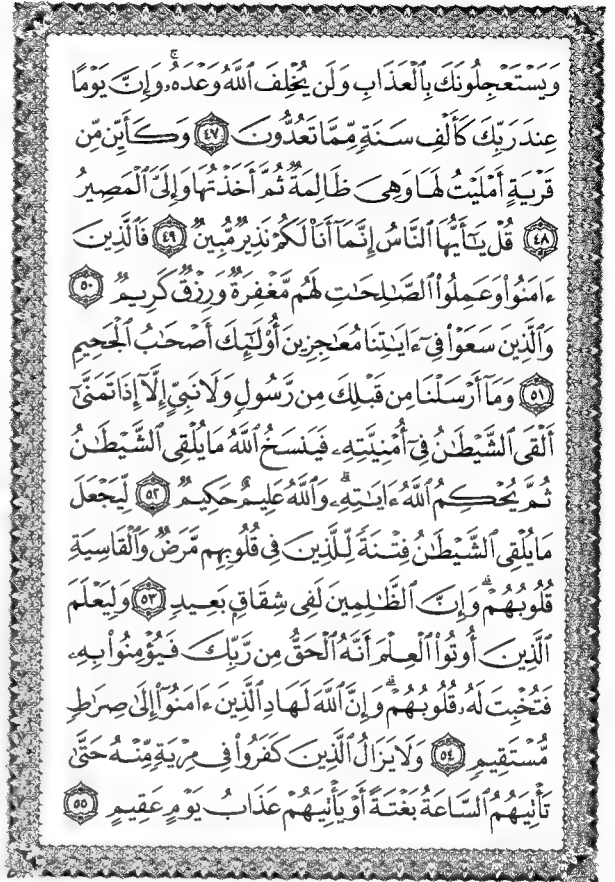 وَيَسْتَعْجِلُونَكَ بِٱلْعَذَابِ وَلَن يُخْلِفَ ٱللَّهُ وَعْدَهُۥۚ وَإِنَّ يَوْمًا
عِندَ رَبِّكَ كَأَلْفِ سَنَةٍ مِّمَّا تَعُدُّونَ ٤٧ وَكَأَيِّن مِّن
قَرْيَةٍ أَمْلَيْتُ لَهَا وَهِىَ ظَالِمَةٌ ثُمَّ أَخَذْتُهَا وَإِلَىَّ ٱلْمَصِيرُ
٤٨ قُلْ يَٰٓأَيُّهَا ٱلنَّاسُ إِنَّمَآ أَنَا۠ لَكُمْ نَذِيرٌ مُّبِينٌ ٤٩ فَٱلَّذِينَ
ءَامَنُوا۟ وَعَمِلُوا۟ ٱلصَّٰلِحَٰتِ لَهُم مَّغْفِرَةٌ وَرِزْقٌ كَرِيمٌ ٥٠
وَٱلَّذِينَ سَعَوْا۟ فِىٓ ءَايَٰتِنَا مُعَٰجِزِينَ أُو۟لَٰٓئِكَ أَصْحَٰبُ ٱلْجَحِيمِ
٥١ وَمَآ أَرْسَلْنَا مِن قَبْلِكَ مِن رَّسُولٍ وَلَا نَبِىٍّ إِلَّآ إِذَا تَمَنَّىٰٓ
أَلْقَى ٱلشَّيْطَٰنُ فِىٓ أُمْنِيَّتِهِۦ فَيَنسَخُ ٱللَّهُ مَا يُلْقِى ٱلشَّيْطَٰنُ
ثُمَّ يُحْكِمُ ٱللَّهُ ءَايَٰتِهِۦۗ وَٱللَّهُ عَلِيمٌ حَكِيمٌ ٥٢ لِّيَجْعَلَ
مَا يُلْقِى ٱلشَّيْطَٰنُ فِتْنَةً لِّلَّذِينَ فِى قُلُوبِهِم مَّرَضٌ وَٱلْقَاسِيَةِ
قُلُوبُهُمْۗ وَإِنَّ ٱلظَّٰلِمِينَ لَفِى شِقَاقٍۭ بَعِيدٍ ٥٣ وَلِيَعْلَمَ
ٱلَّذِينَ أُوتُوا۟ ٱلْعِلْمَ أَنَّهُ ٱلْحَقُّ مِن رَّبِّكَ فَيُؤْمِنُوا۟ بِهِۦ
فَتُخْبِتَ لَهُۥ قُلُوبُهُمْۗ وَإِنَّ ٱللَّهَ لَهَادِ ٱلَّذِينَ ءَامَنُوٓا۟ إِلَىٰ صِرَٰطٍ
مُّسْتَقِيمٍ ٥٤ وَلَا يَزَالُ ٱلَّذِينَ كَفَرُوا۟ فِى مِرْيَةٍ مِّنْهُ حَتَّىٰ
تَأْتِيَهُمُ ٱلسَّاعَةُ بَغْتَةً أَوْ يَأْتِيَهُمْ عَذَابُ يَوْمٍ عَقِيمٍ ٥٥